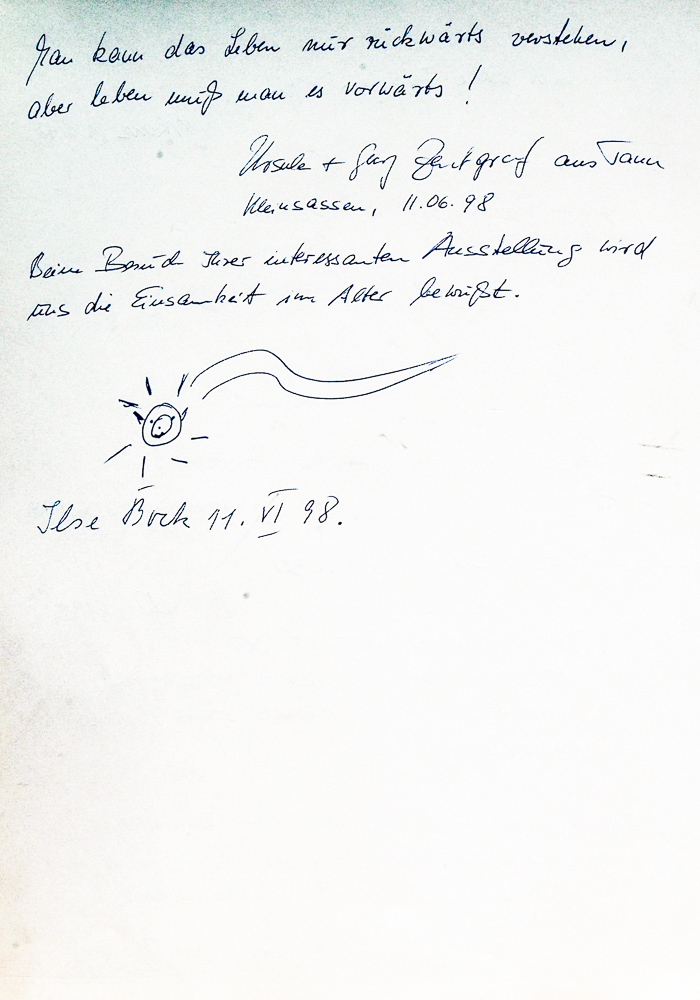 Man kann das Leben nur rückwärts verstehen,
aber leben muß man es vorwärts!
Ursula + Georg Zentgraf aus Tann
Kleinsassen, 11.06.98
Beim Besuch Ihrer interessanten Ausstellung wird
uns die Einsamkeit im Alter bewußt.
Ilse Bock 11. VI 98.